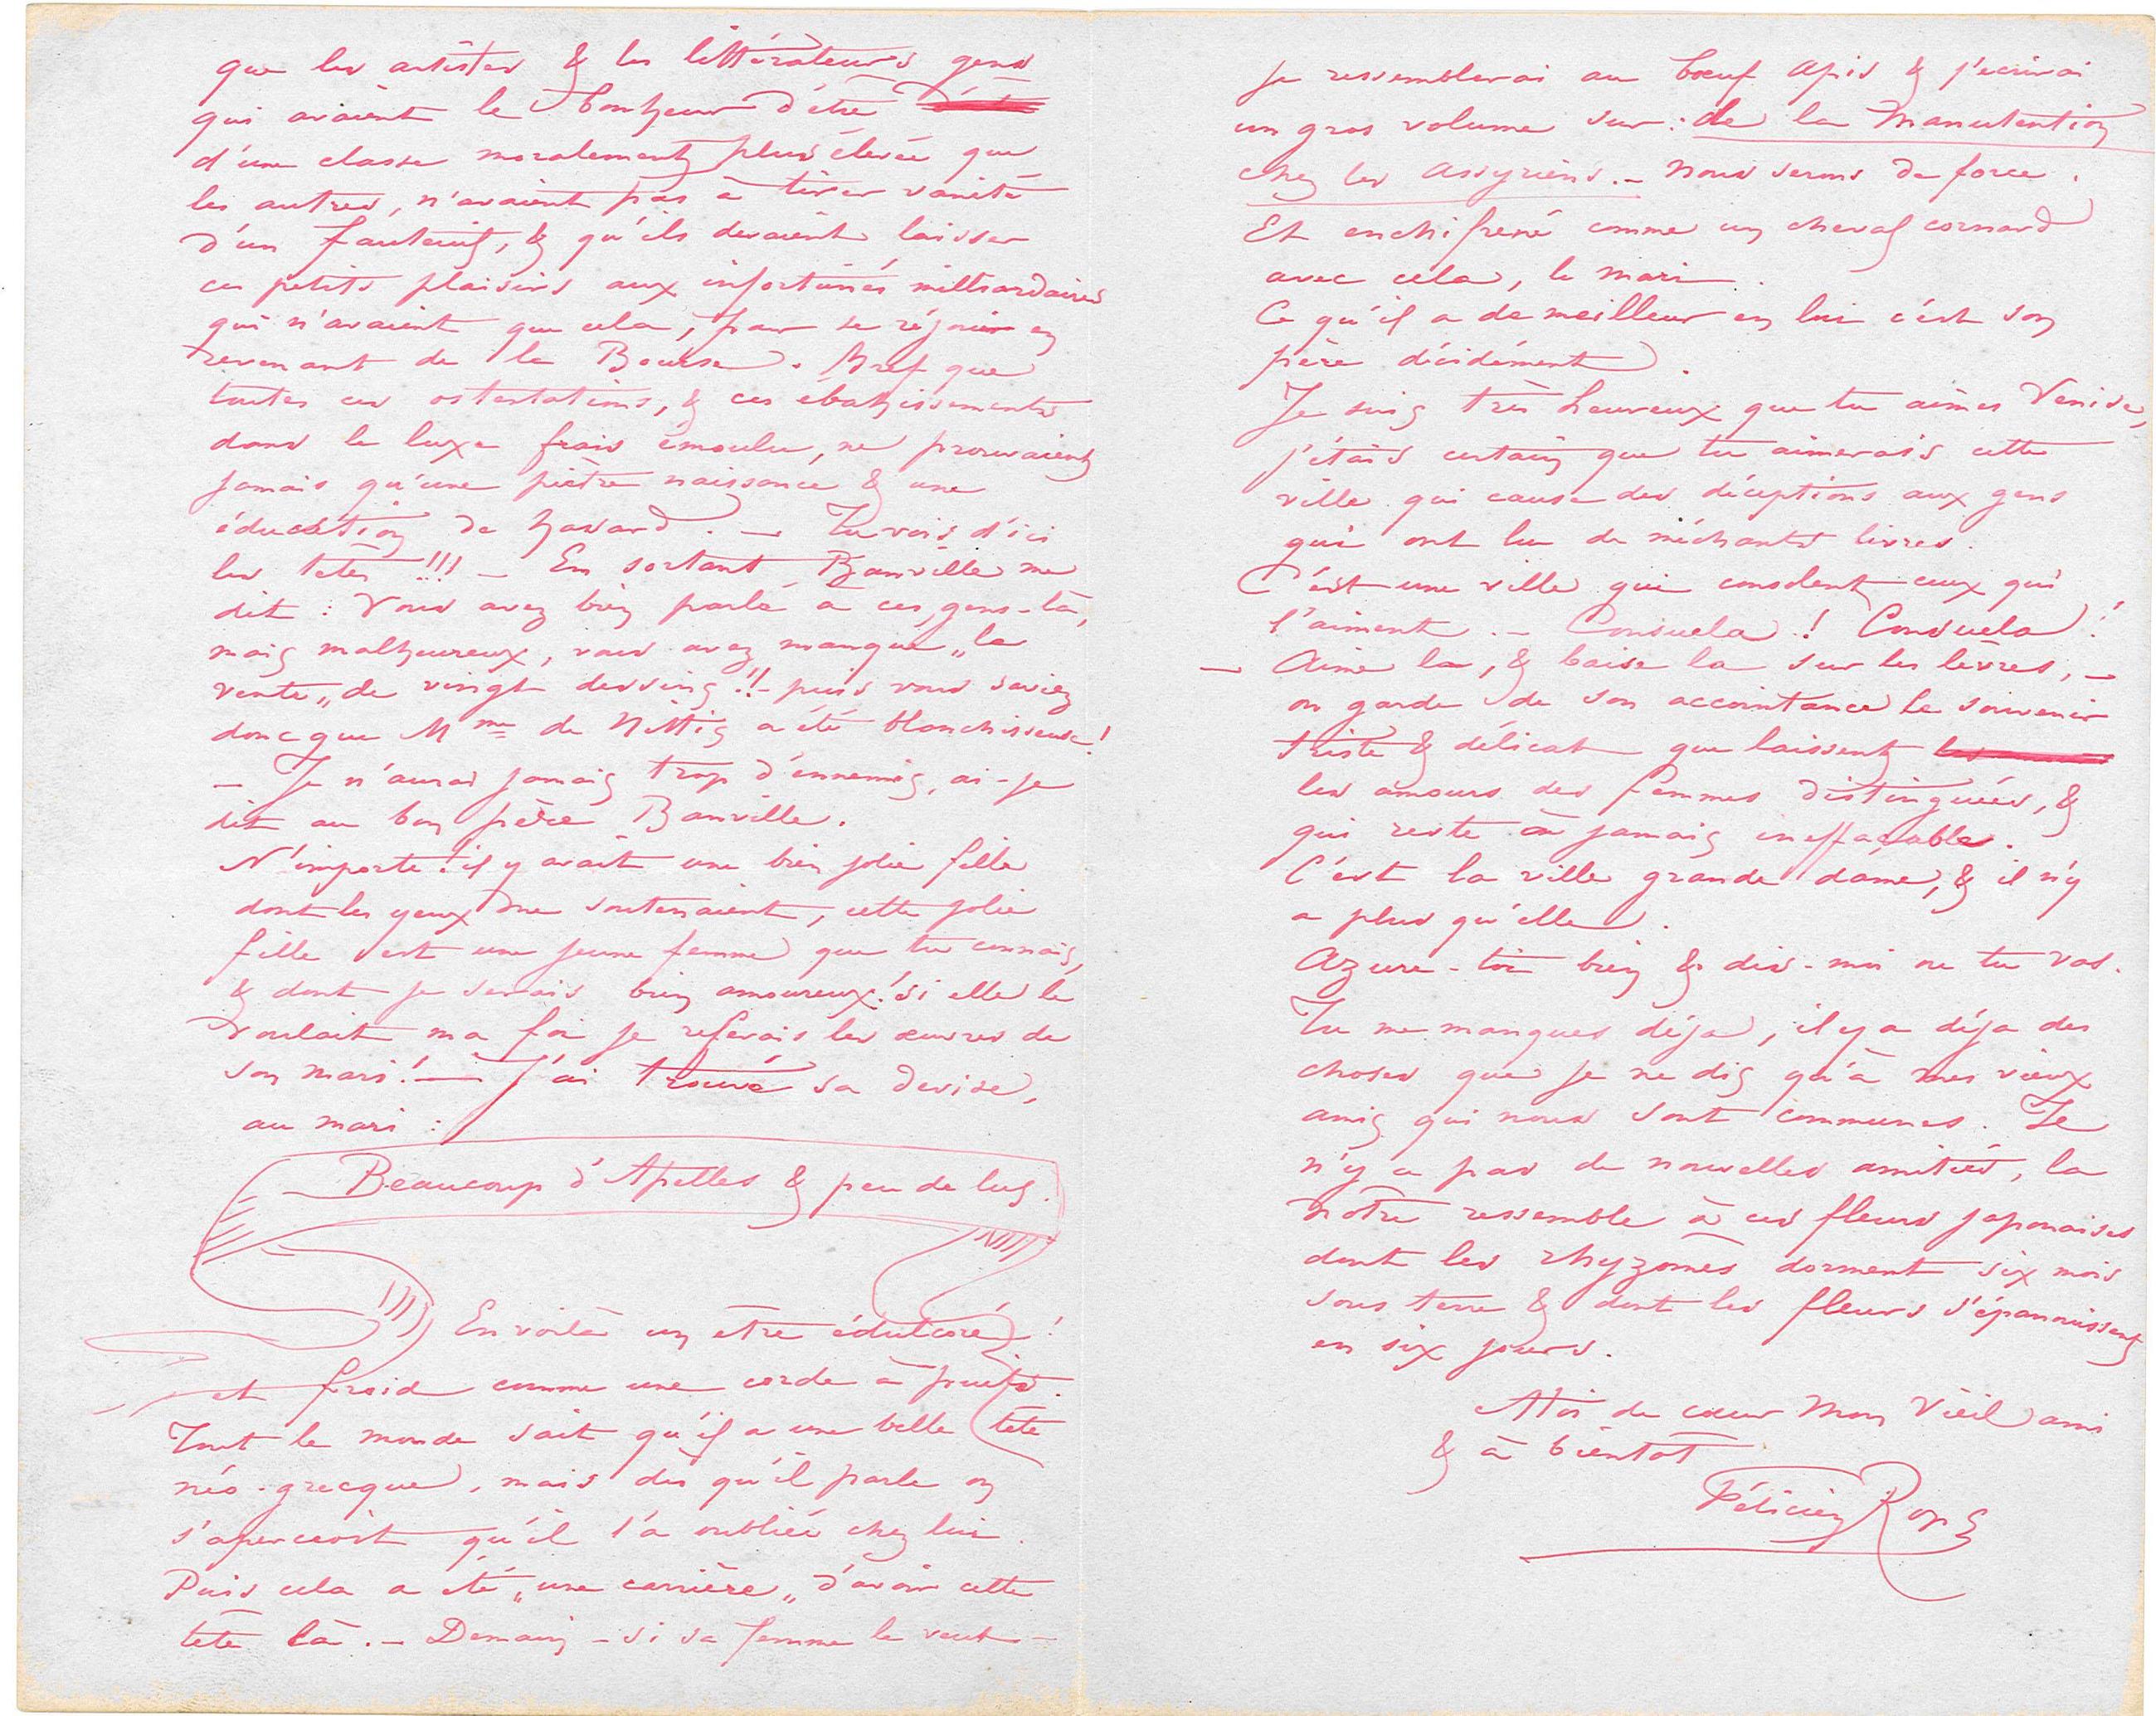 que les artistes & les littérateurs gens
qui avaient le bonheur d'être
d'une classe moralement plus élevée que
les autres, n'avaient pas à tirer vanité
d'un fauteuil, & qu'ils devaient laisser
ces petits plaisirs aux infortunés milliardaires
qui n'avaient que cela, pour se réjouir en
revenant de la Bourse. Bref que
toutes ces ostentations, & ces ébahissements
dans le luxe frais émoulu, ne prouvaient
jamais qu'une piètre naissance & une
éducation de hasard. – Tu vois d'ici
les têtes !!! – En sortant Banville me
dit : Vous avez bien parlé à ces gens-là,
mais malheureux, vous avez manqué „la
vente„ de vingt dessins !! – puis vous saviez
donc que Mme de Nittis a été blanchisseuse !
– Je n'aurai jamais trop d'ennemis, ai-je
dit au bon père Banville.
N'importe ! il y avait une bien jolie fille
dont les yeux me soutenaient, cette jolie
fille est une jeune femme que tu connais,
& dont je serais bien amoureux ! si elle le
voulait ma foi je referais les œuvres de
son mari ! – J'ai trouvé sa devise,
au mari :
Beaucoup d'Apelles & peu de lus.
En voilà un être édulcoré !
et froid comme une corde à puits.
Tout le monde sait qu'il a une belle tête
néo-grecque, mais dès qu'il parle on
s'aperçoit qu'il l'a oubliée chez lui.
Puis cela a été „une carrière„ d'avoir cette
tête là. – Demain – si sa femme le veut –
je ressemblerai au bœuf Apis & j'écrirai
un gros volume sur : de la Manutention
chez les Assyriens. – Nous serons de force.
Et enchifrené comme un cheval cornard
avec cela, le mari.
Ce qu'il a de meilleur en lui c'est son
père décidément.
Je suis très heureux que tu aimes Venise,
j'étais certain que tu aimerais cette
ville qui cause des déceptions aux gens
qui ont lu de méchants livres.
C'est une ville qui consolent ceux qui
l'aiment. – Consuela ! Consuela !
– Aime la, & baise la sur les lèvres, –
on garde de son accointance le souvenir
triste & délicat que laissent
les amours des femmes distinguées, &
qui reste à jamais ineffaçable.
C'est la ville grande dame, & il n'y
a plus qu'elle.
Azure-toi bien & dis-moi où tu vas.
Tu me manques déjà, il y a déjà des
choses que je ne dis qu'à mes vieux
amis qui nous sont communes. Il
n'y a pas de nouvelles amitiés, la
nôtre ressemble à ces fleurs japonaises
dont les rhyzomes dorment six mois
sous terre & dont les fleurs s'épanouissent
en six jours.
A toi de cœur Mon Vieil ami
& à bientôt
Félicien Rops